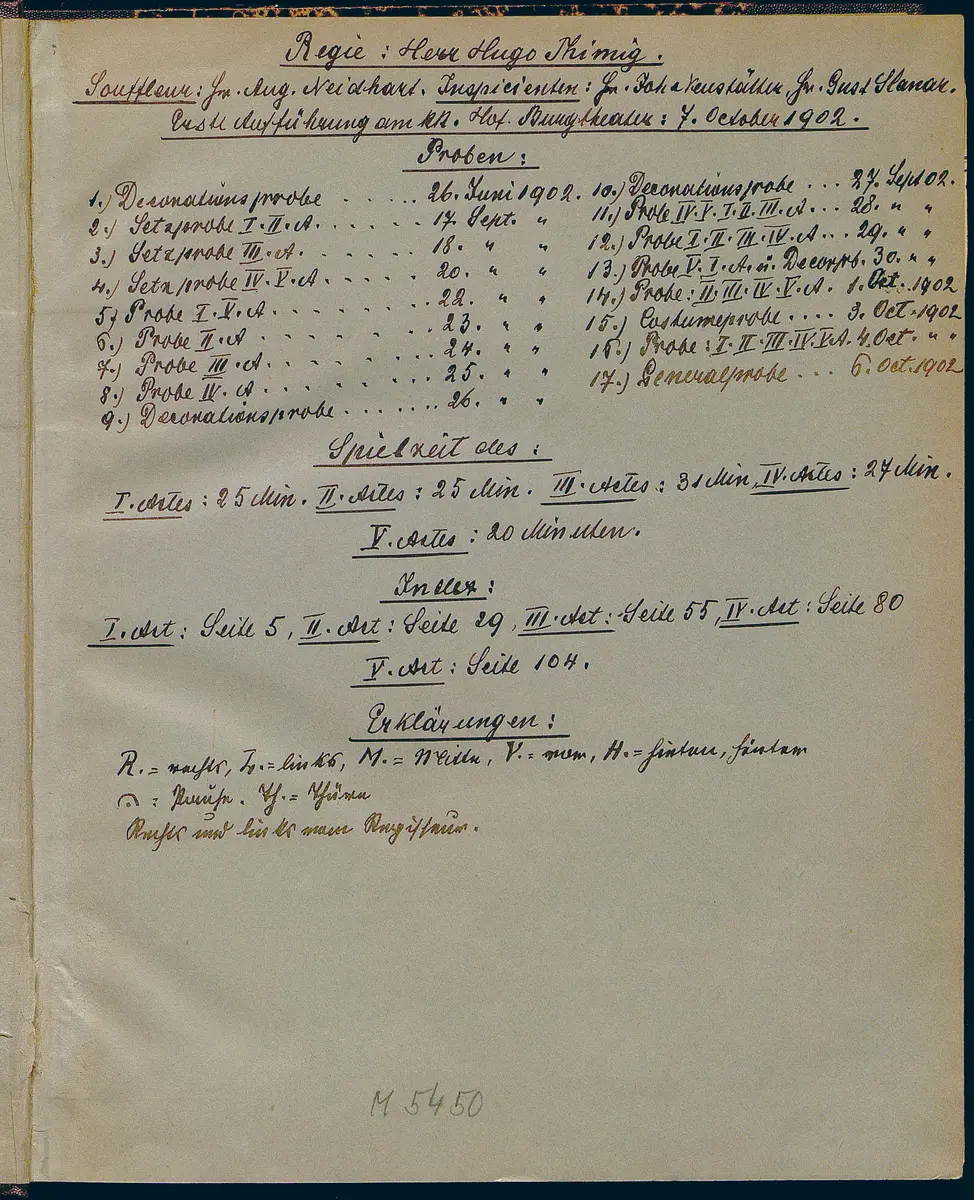 Regie : Herr Hugo Thimig.
Souffleur : Hr. Aug. Neidhart. Inspicienten : Hr. Joh. Neustätter, Hr. Gust Slanar.
Erste Aufführung am kk. Hof. Burgtheater : 7. October 1902.
Proben :
1.) Decorationsprobe . . . . . . 26. Juni 1902.
2.) Setzprobe I. II. A. . . . . . . 17. Sept. "
3.) Setzprobe III. A. . . . . . . . 18. " "
4.) Setzprobe IV. V. A. . . . . . 20. " "
5.) Probe I. V. A. . . . . . . . . 22. " "
6.) Probe II. A . . . . . . . . . 23. " "
7.) Probe III. A. . . . . . . . . 24. " "
8.) Probe IV. A . . . . . . . . . 25. " "
9.) Decorationsprobe . . . . . . . 26. " "
10.) Decorationsprobe . . . 27. Sept 02.
11.) Probe IV. V. I. II. III. A . . . 28. " "
12.) Probe I. II. III. IV. A . . . 29. " "
13.) Probe V. I. A. u. Decorprb. 30. " "
14.) Probe : II. III. IV. V. A. 1. Oct. 1902
15.) Costumeprobe . . . . 3. Oct. 1902
16.) Probe : I. II. III. IV. V A. 4. Oct. " "
17.) Generalprobe . . . 6. Oct. 1902
Spielzeit des :
I. Actes : 25 Min. II. Actes : 25 Min. III. Actes : 31 Min, IV. Actes : 27 Min.
V. Actes : 20 Minuten.
Index :
I. Act : Seite 5, II. Act : Seite 29, III. Act : Seite 55, IV. Act : Seite 80
V. Act : Seite 104.
Erklärungen :
R. = rechts, L. = links, M. = Mitte, V. = vorn, H. = hinten, hinter
: Pause. Th. = Thüre
Rechts und links vom Regisseur.
M 5450